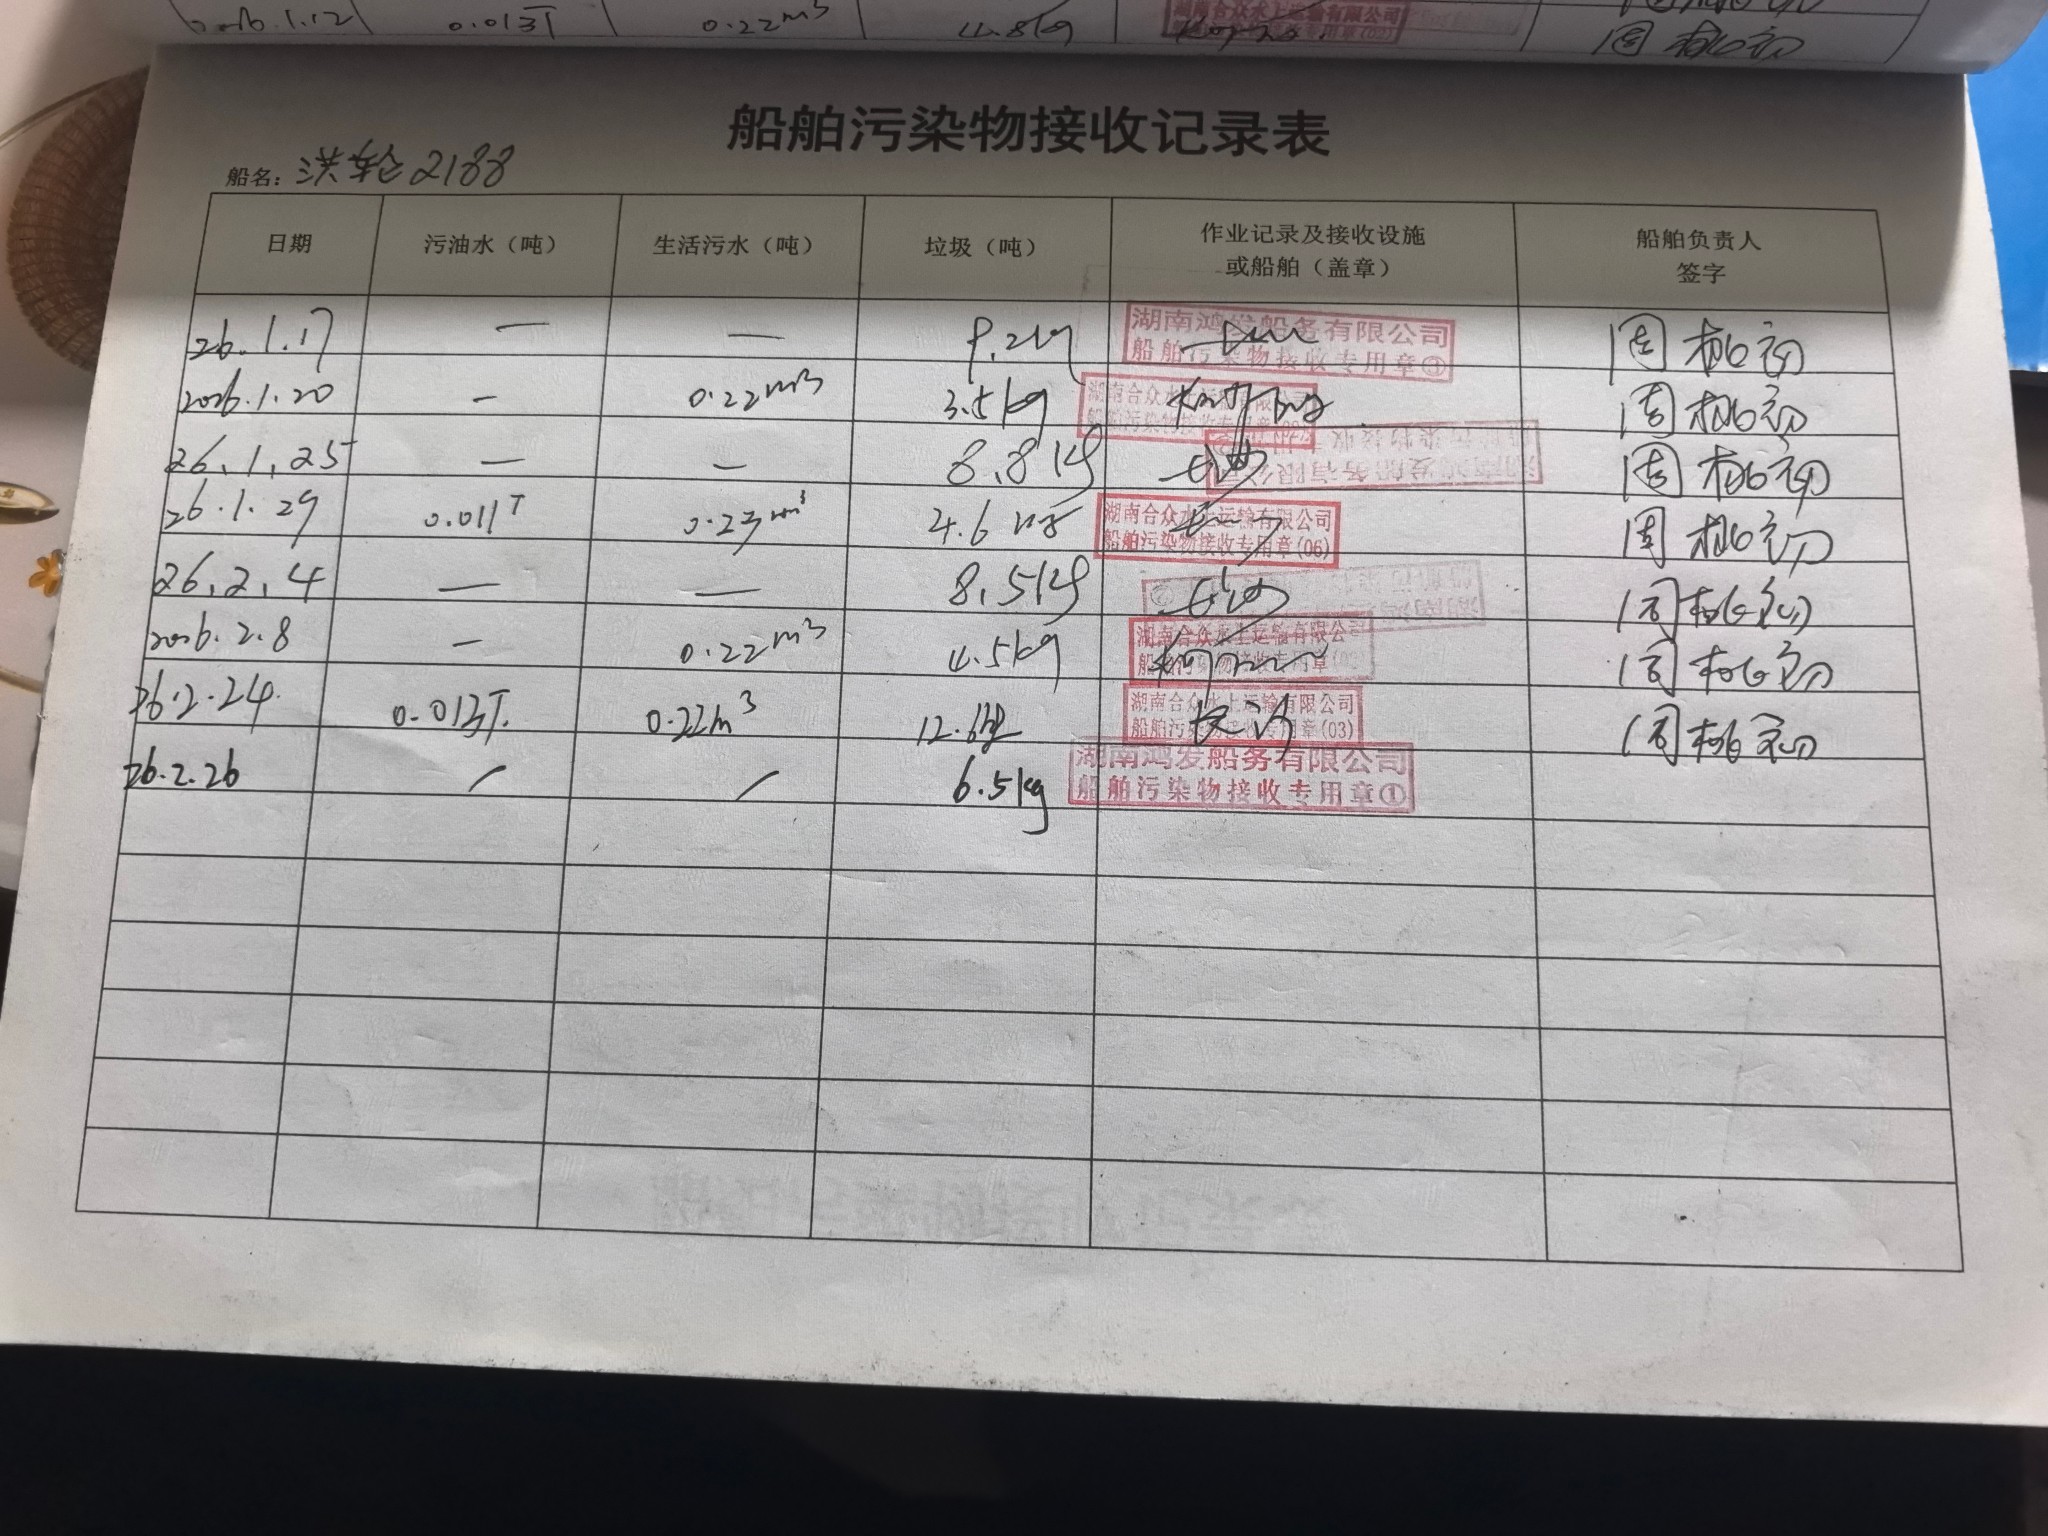 2026.1.12 0.013T 0.22m³ 4.8kg 湖南合众水上运输有限公司 周桃初
船舶污染物接收记录表
船名: 洪轮2188
日期 污油水（吨） 生活污水（吨） 垃圾（吨） 作业记录及接收设施 船舶负责人
或船舶（盖章） 签字
26.1.17 — — 9.2kg 湖南鸿发船务有限公司 周桃初
船舶污染物接收专用章
2026.1.20 - 0.22m³ 3.5kg 湖南合众水上运输有限公司 周桃初
船舶污染物接收专用章
26.1.25 — — 8.8kg 湖南鸿发船务有限公司 周桃初
船舶污染物接收专用章
26.1.29 0.011T 0.23m³ 4.6kg 湖南合众水上运输有限公司 周桃初
船舶污染物接收专用章(06)
26.2.4 — — 8.5kg 周桃初
2026.2.8 - 0.22m³ 4.5kg 湖南合众水上运输有限公司 周桃初
船舶污染物接收专用章
26.2.24. 0.013T. 0.22m³ 12.6kg 湖南合众水上运输有限公司 周桃初
船舶污染物接收专用章(03)
26.2.26 / / 6.5kg 湖南鸿发船务有限公司
船舶污染物接收专用章①